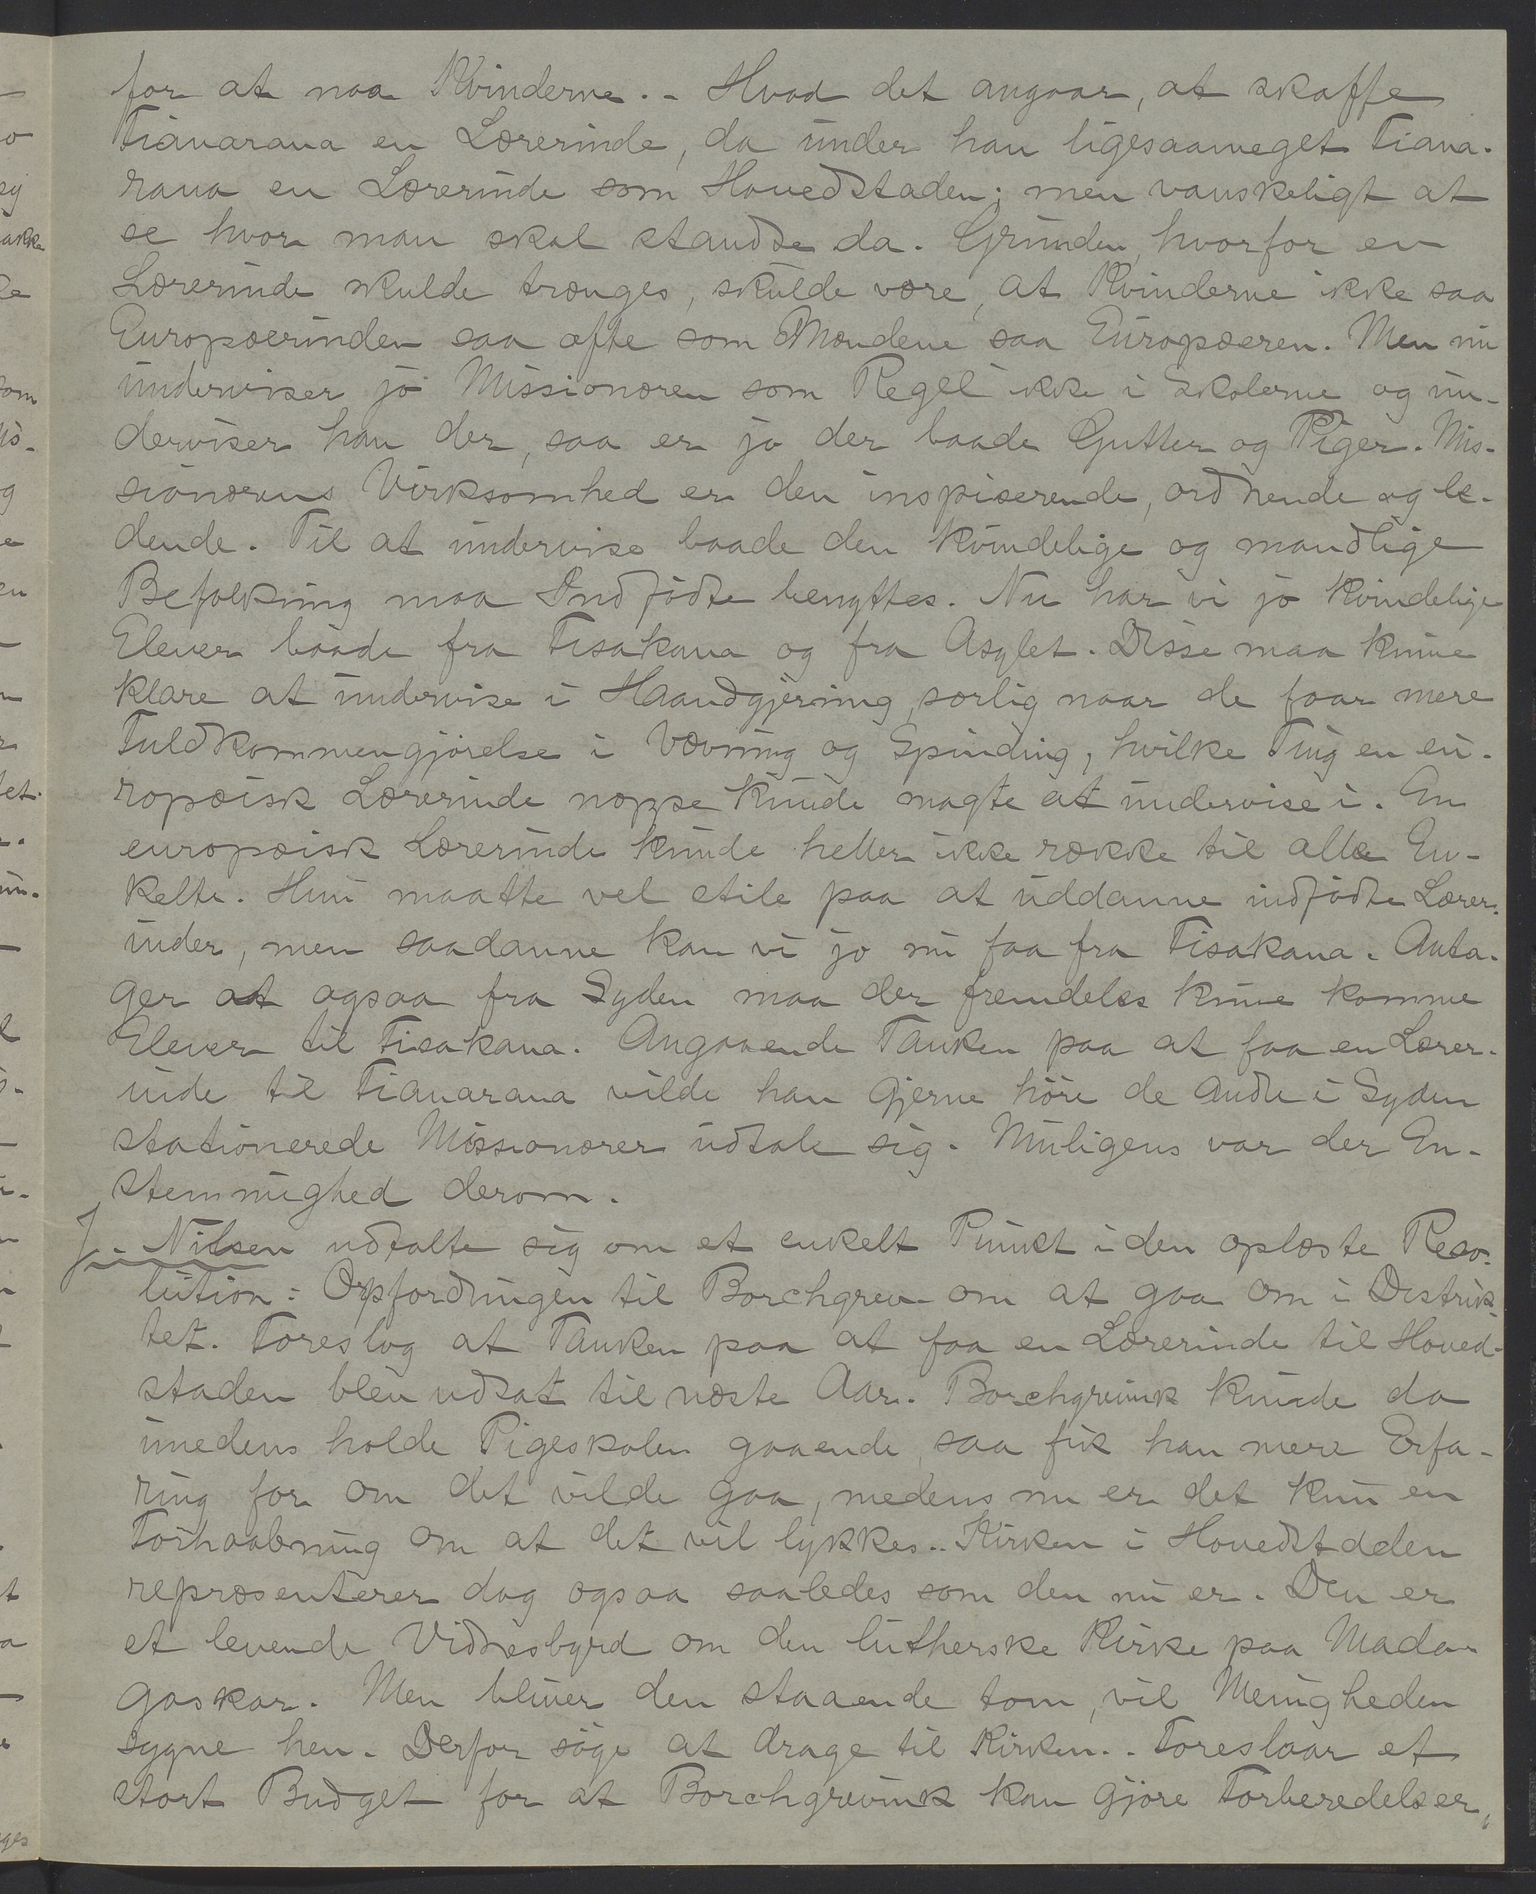 for at naa Kvinderne. - Hvad det angaar, at skaffe
Fianarana en Lærerinde, da under han ligesaameget Fiana-
rana en Lærerinde som Hovedstaden; men vanskeligt at
se hvor man skal standse da. Grunden, hvorfor en
Lærerinde skulde trænges, skulde være, at Kvinderne ikke saa
Europæerinden saa ofte som Mændene saa Europæeren. Men nu
underviser jo Missionæren som Regel ikke i Skolerne og un-
derviser han der, saa er jo der baade Gutter og Piger. Mis-
sionærens Virksomhed er den inspiserende, ordnende og le-
dende. Til at undervise baade den kvindelige og mandlige
Befolkning maa Indfødte benyttes. Nu har vi jo kvindelige
Elever baade fra Fisakana og fra Asylet. Disse maa kunne
klare at undervise i Haandgjerning, særlig naar de faar mere
Fuldkommengjørelse i Vævning og Spinding, hvilke Ting en eu-
ropæisk Lærerinde neppe kunde magte at undervise i. En
europæisk Lærerinde kunde heller ikke række til alle En-
kelte. Hun maatte vel stile paa at uddanne indfødte Lærer-
inder, men saadanne kan vi jo nu faa fra Fisakana. Anta-
ger at ogsaa fra Syden maa der fremdeles kunne komme
Elever til Fisakana. Angaaende Tanken paa at faa en Lærer-
inde til Fianarana vilde han gjerne høre de andre i Syden
stationerede Missionærer udtale sig. Muligens var der En-
stemmighed derom.
J. Nilsen udtalte sig om et enkelt Punkt i den oplæste Reso-
lution: Opfordringen til Borchgrev. om at gaa om i Distrik-
tet. Foreslog at Tanken paa at faa en Lærerinde til Hoved-
staden blev udsat til næste Aar. Borchgrevink kunde da
imedens holde Pigeskolen gaaende, saa fik han mere Erfa-
ring for om det vilde gaa, medens nu er det kun en
Forhaabning om at det vil lykkes.. Kirken i Hovedstaden
repræsenterer dog ogsaa saaledes som den nu er. Den er
et levende Vidnesbyrd om den lutherske Kirke paa Mada-
gaskar. Men bliver den staaende tom, vil Menigheden
sygne hen. Derfor søge at drage til Kirken.. Foreslaar et
stort Budget for at Borchgrevink kan gjøre Forberedelser,